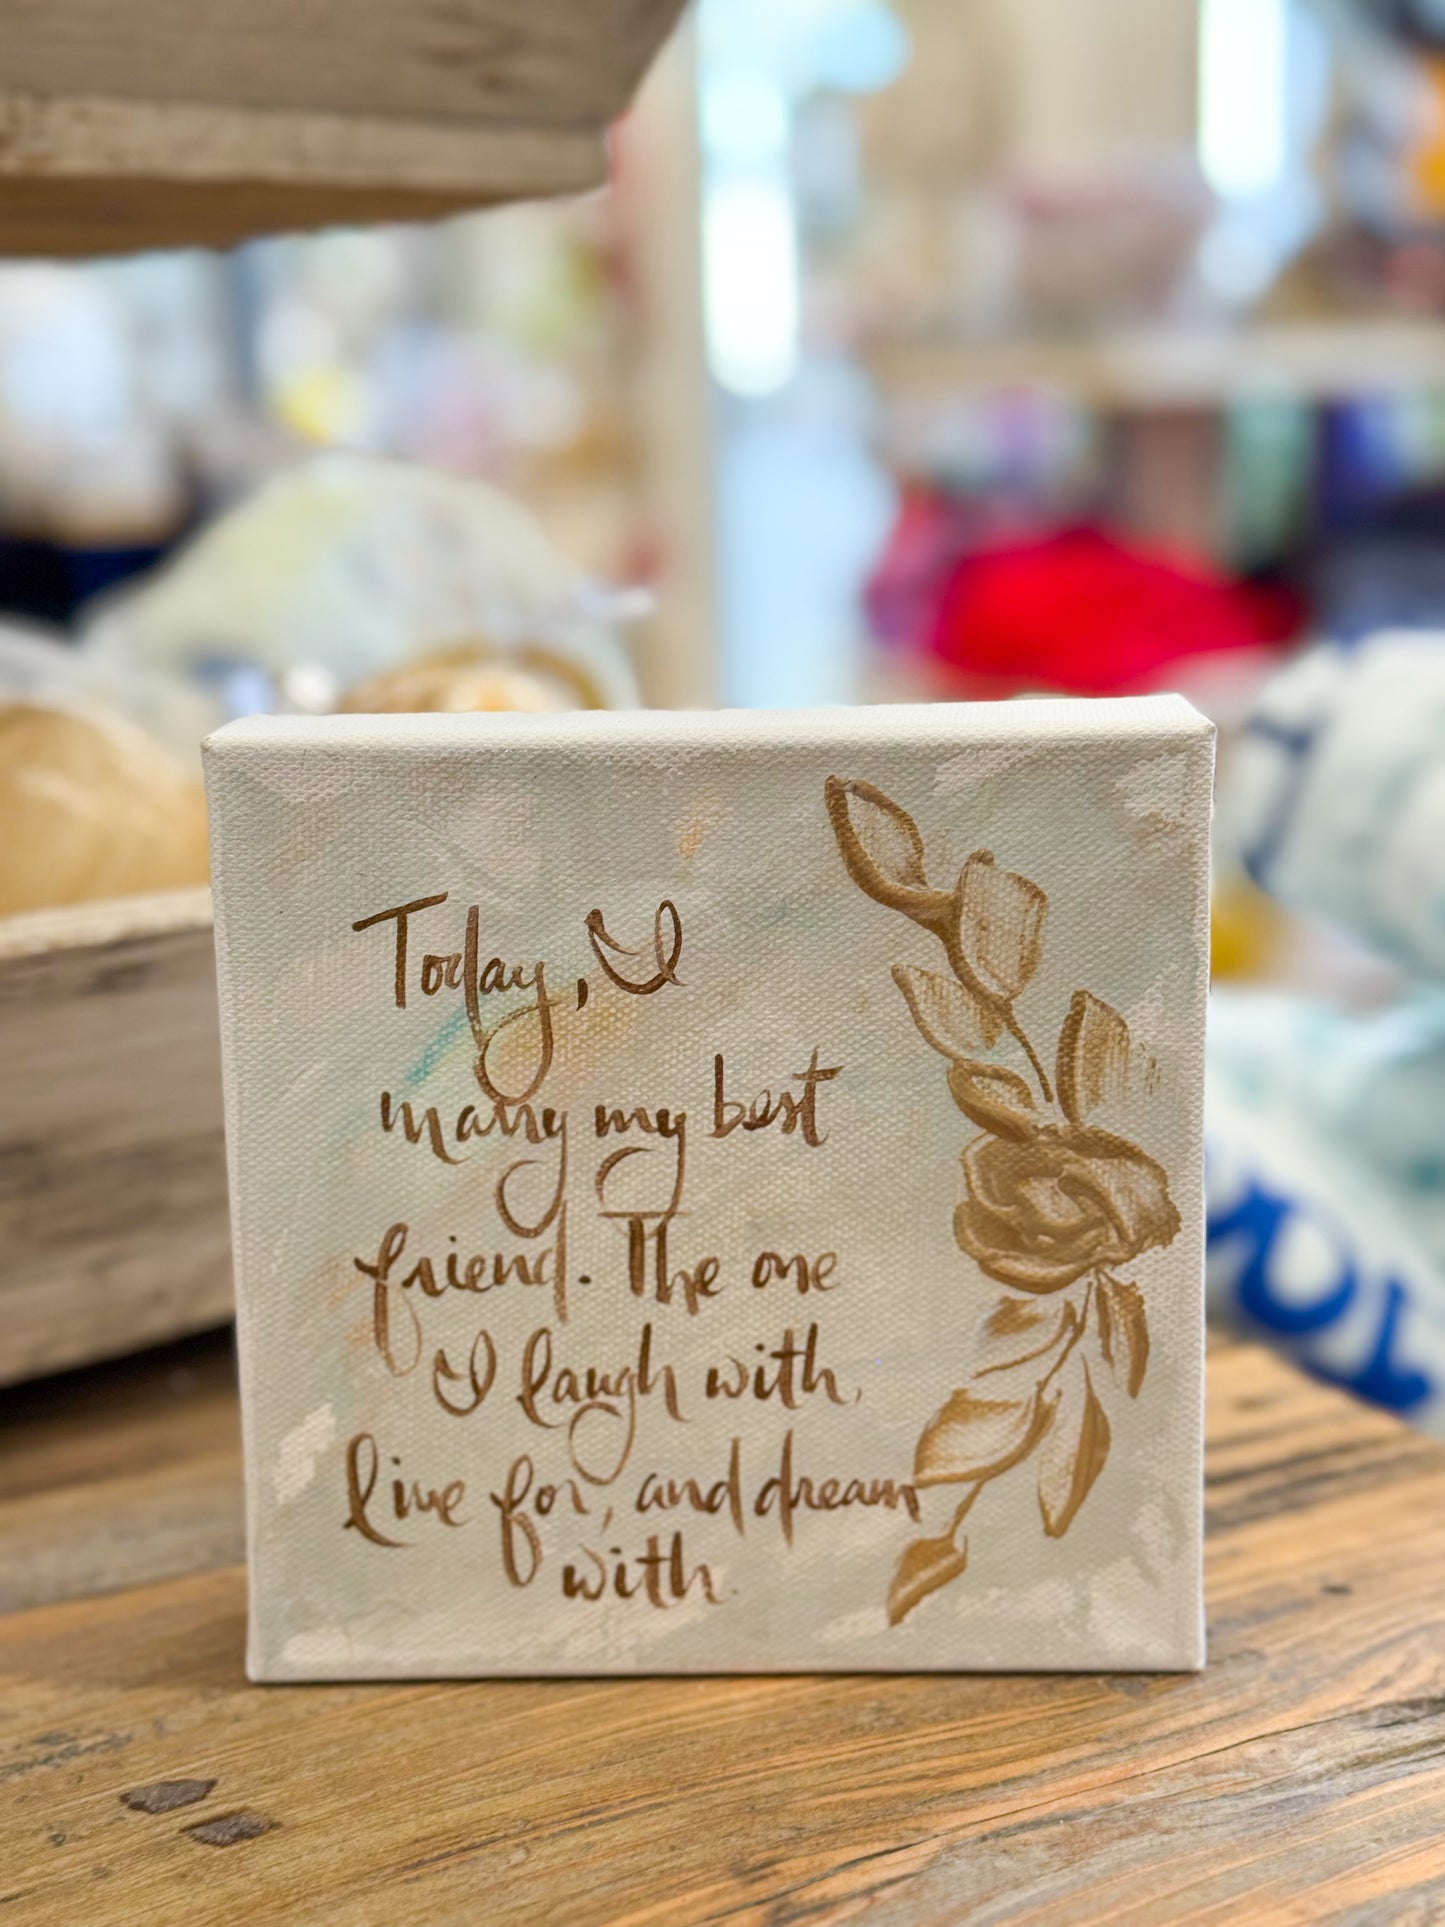 Today, I
marry my best
friend. The one
I laugh with,
live for, and dream
with.